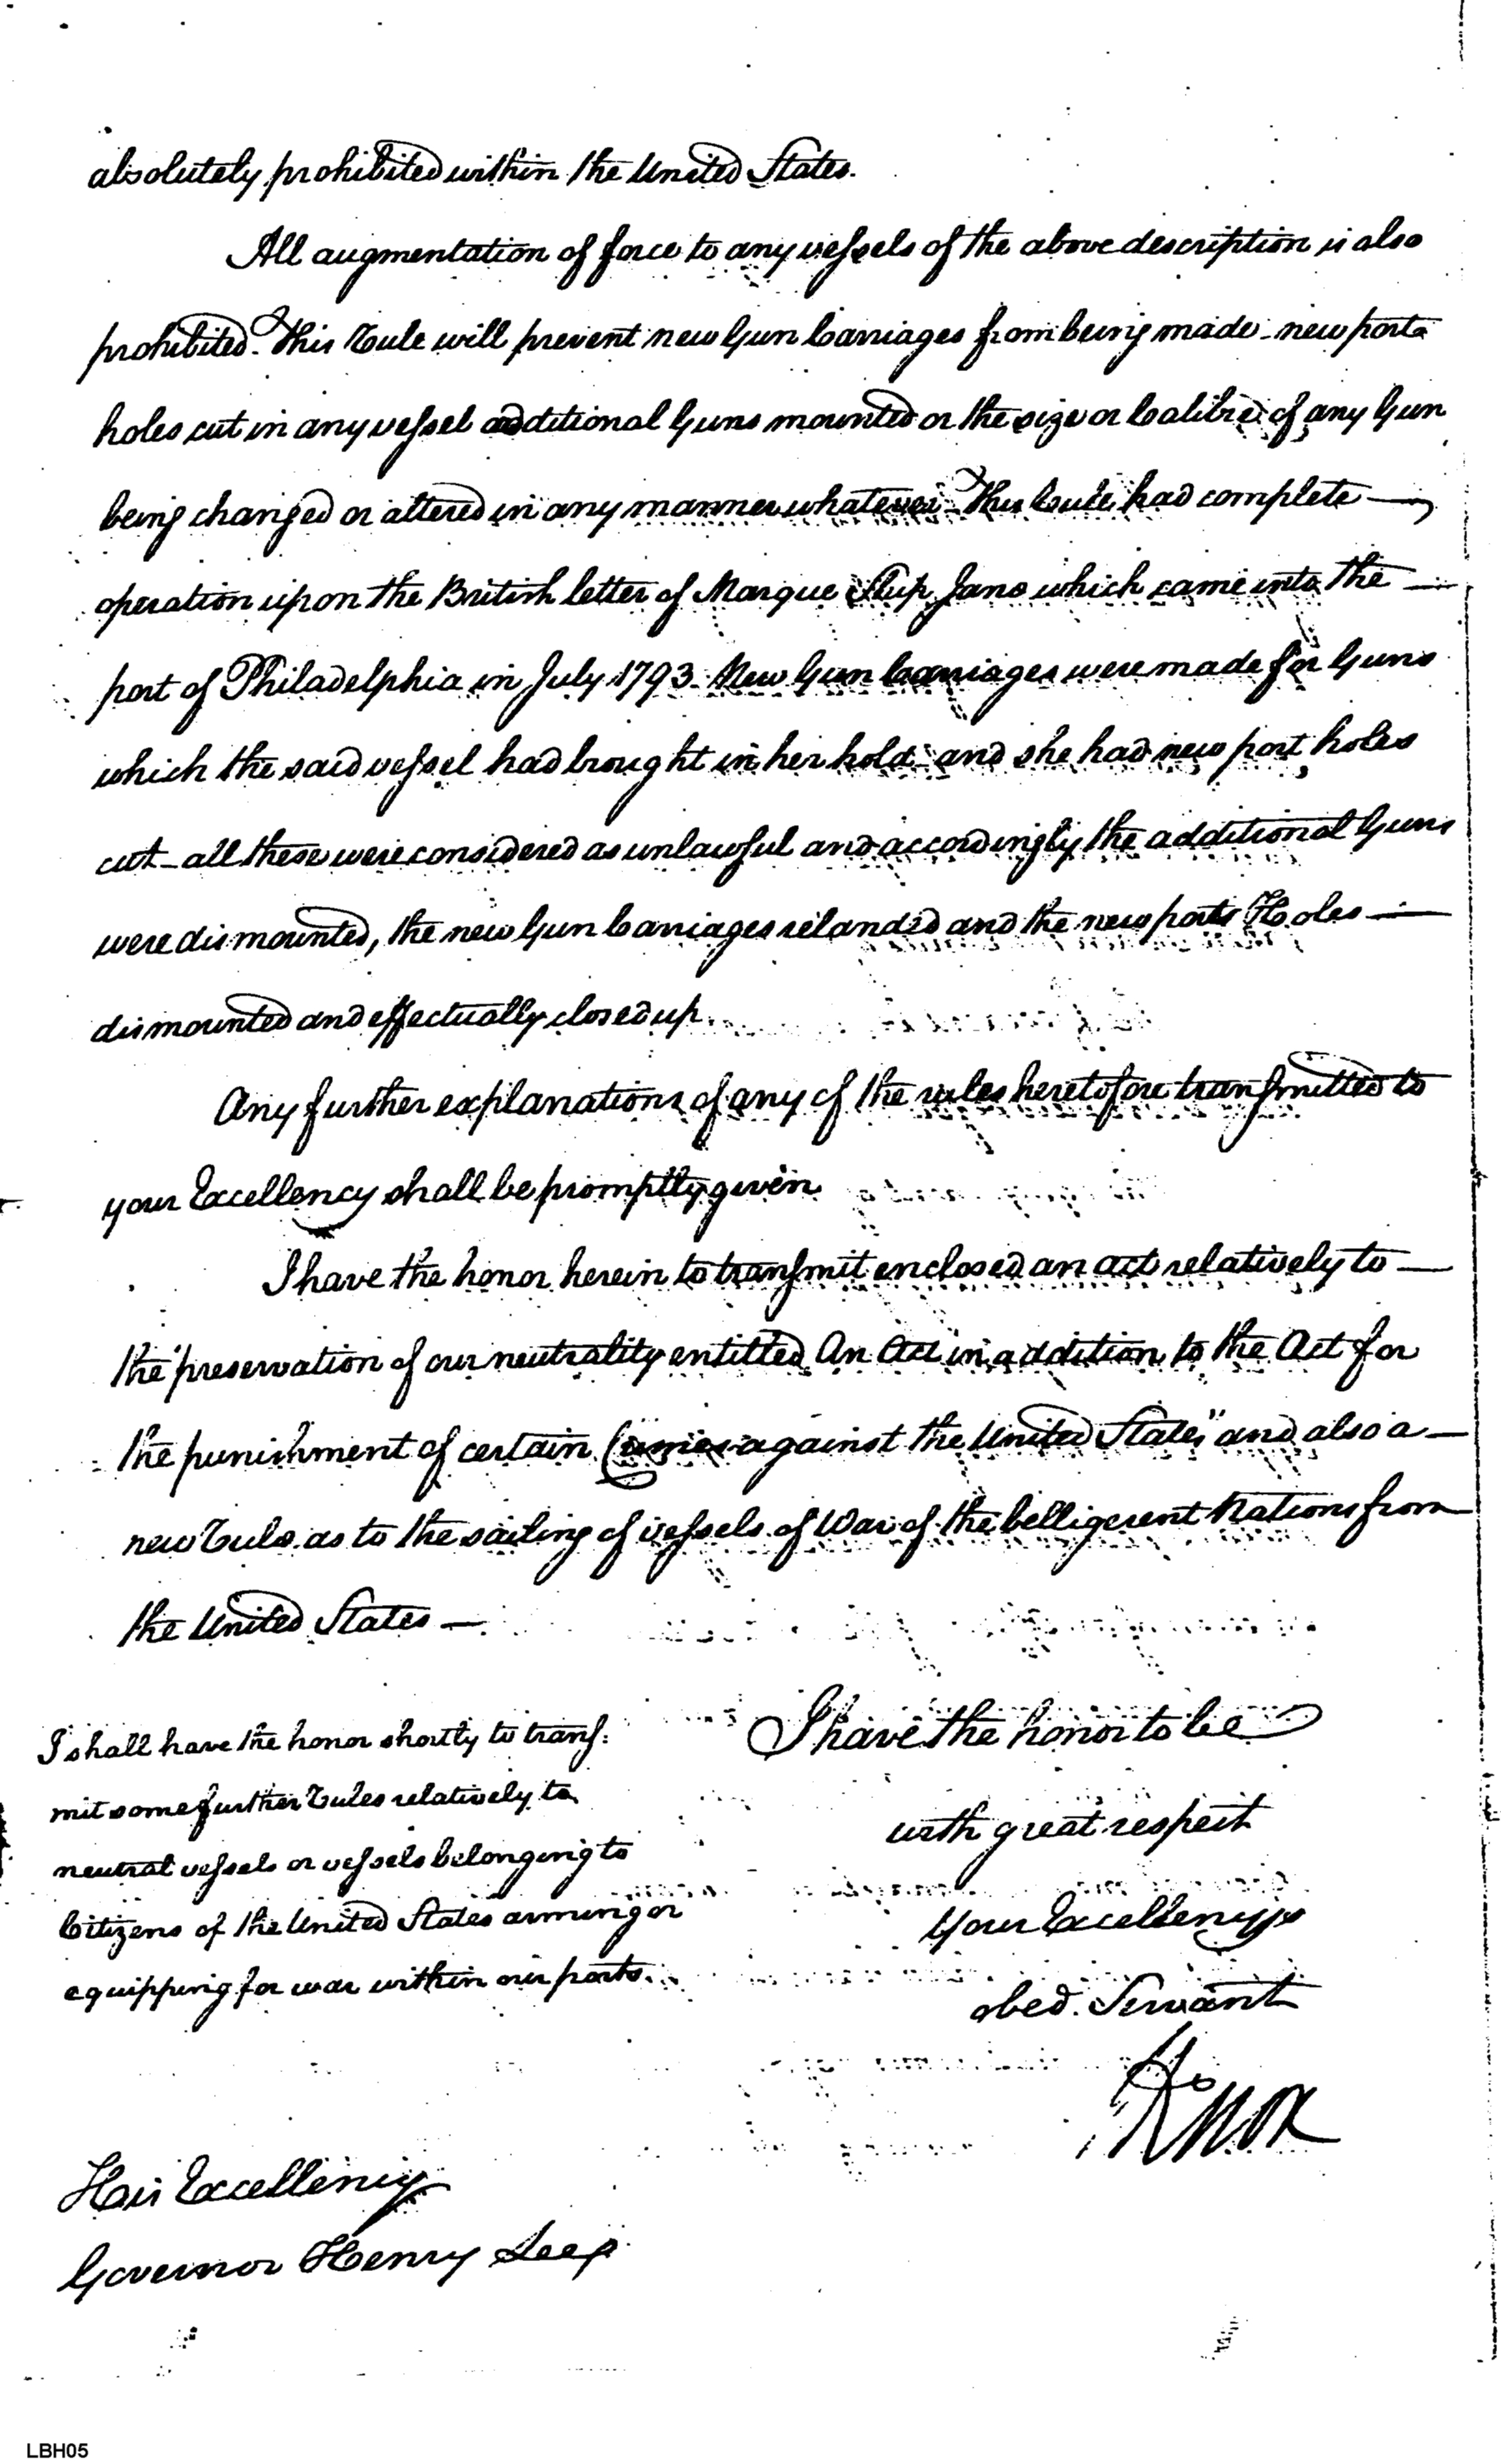 absolutely prohibited within the United States.
All augmentation of force to any vessels of the above description is also
prohibited. This Rule will prevent new Gun Carriages from being made - new port
holes cut in any vessel additional Guns mounted or the size or Calibre of any Gun
being changed or altered in any manner whatever - This Rule had complete
operation upon the British letter of Marque Ship Jane which came into the
port of Philadelphia in July 1793. New Gun Carriages were made for Guns
which the said vessel had brought in her hold - and she had new port holes
cut - all these were considered as unlawful and accordingly the additional Guns
were dismounted, the new Gun Carriages relanded and the new ports Holes
dismounted and effectually closed up.
Any further explanations of any of the rules heretofore transmitted to
your Excellency shall be promptly given
I have the honor herein to transmit enclosed an act relatively to
the preservation of our neutrality entitled "An Act in addition to the Act for
the punishment of certain Crimes against the United States" and also a
new Rule as to the sailing of vessels of War of the belligerent Nations from
the United States —
I shall have the honor shortly to trans:
mit some further Rules relatively to
neutral vessels or vessels belonging to
Citizens of the United States arming or
equipping for war within our ports.
I have the honor to be
with great respect
Your Excellency's
obed. Servant
HKnox
His Excellency
Governor Henry Lee
LBH05